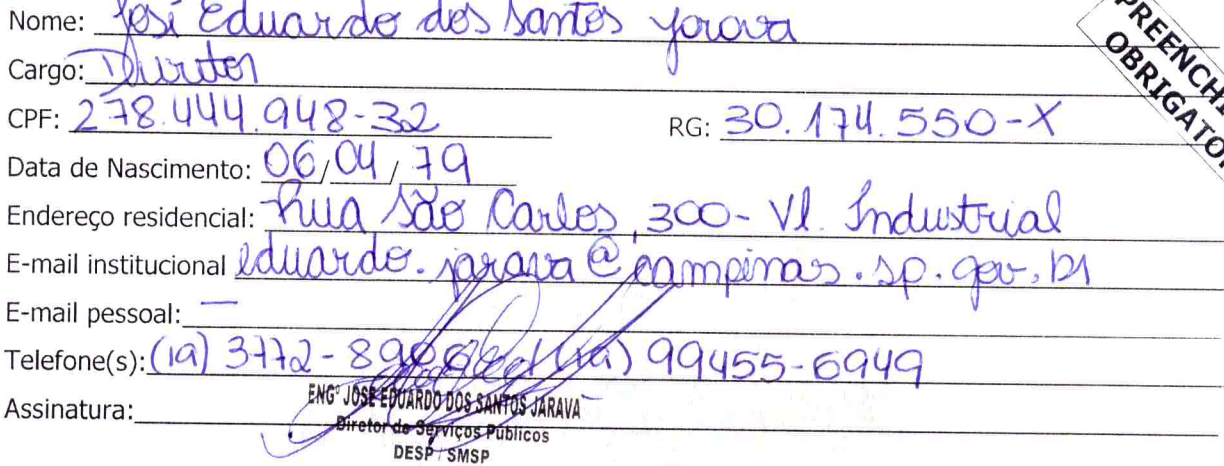 Nome: José Eduardo dos Santos Jarava
Cargo: Diretor
PREENCHI
OBRIGATOR
CPF: 278.444.948-32 RG: 30.174.550-X
Data de Nascimento: 06/04/79
Endereço residencial: Rua São Carlos, 300 - Vl. Industrial
E-mail institucional eduardo.jarava@campinas.sp.gov.br
E-mail pessoal: —
Telefone(s): (19) 3772- (19) 99455-6949
Assinatura:
ENGº JOSÉ EDUARDO DOS SANTOS JARAVA
Diretor de Serviços Públicos
DESP / SMSP